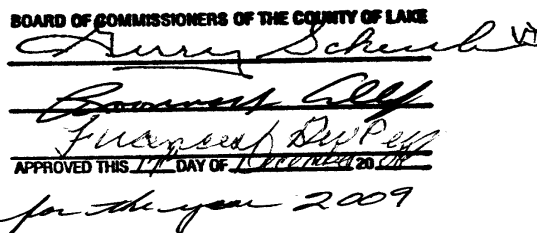 BOARD OF COMMISSIONERS OF THE COUNTY OF LAKE
Gerry Scheub
Roosevelt Allen
Frances DuPey
APPROVED THIS 17th DAY OF December 20 08
for the year 2009